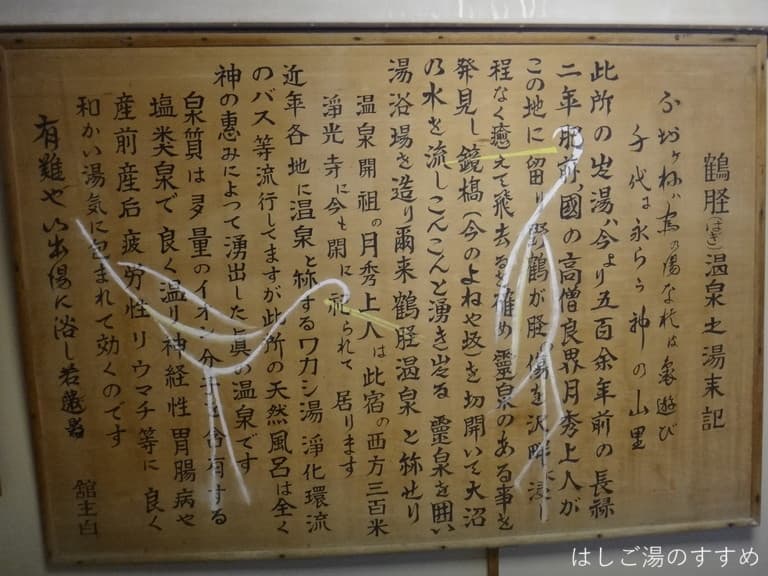 鶴脛(はぎ)温泉之湯来記
千代は永らう神の山里
此所の出湯ハ今より五百余年前の長禄
二年肥前國の高僧良界月秀上人が
この地に留り野鶴が脛の傷を沢畔に浸し
程なく癒えて飛去るを確め靈泉のある事を
発見し鏡橋(今のよねや坂)を切開いて大沼
乃水を流しこんこんと湧き出る靈泉を囲い
湯浴場を造り爾来鶴脛温泉と称せり
温泉開祖の月秀上人は此宿の西方三百米
淨光寺に今も閑に祀られて居ります
近年各地に温泉と称するワカシ湯淨化環流
のバス等流行してますが此所の天然風呂は全く
神の恵みによって湧出した真の温泉です
泉質は多量のイオン分子を含有する
塩类泉で良く温り神経性胃腸病や
産前産后疲労性リウマチ等に良く
和かい湯気に包まれて効くのです
有難や
舘主白
はしご湯のすすめ